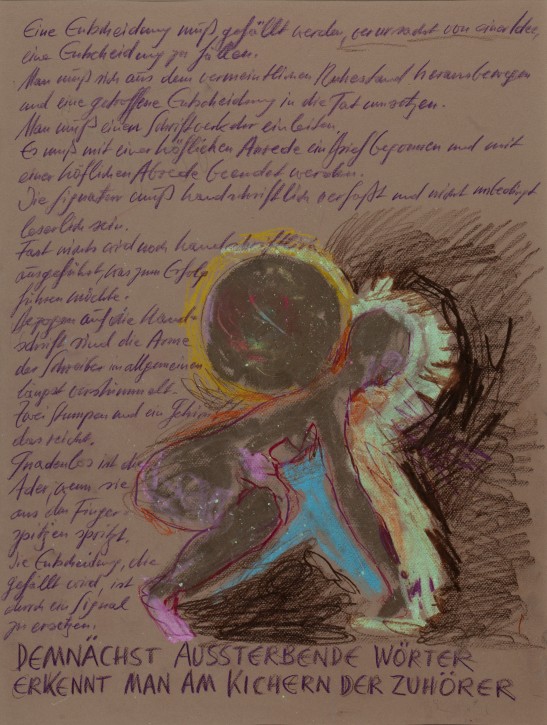 Eine Entscheidung muß gefällt werden, verursacht von einer Idee,
eine Entscheidung zu fällen.
Man muß sich aus dem vermeintlichen Ruhestand herausbewegen
und eine getroffene Entscheidung in die Tat umsetzen.
Man muß einen Schriftverkehr einleiten.
Es muß mit einer höflichen Anrede ein Brief begonnen und mit
einer höflichen Abrede beendet werden.
Die Signatur muß handschriftlich verfaßt und nicht unbedingt
leserlich sein.
Fast nichts wird noch handschriftlich
ausgeführt, was zum Erfolg
führen möchte.
Bezogen auf die Hand-
schrift sind die Arme
der Schreiber im allgemeinen
längst verstümmelt.
Zwei Stumpen und ein Gehirn
das reicht.
Gnadenlos ist die
Ader, wenn sie
aus den Finger-
spitzen spritzt.
Die Entscheidung, die
gefällt wird, ist
durch ein Signal
zu ersetzen.
DEMNÄCHST AUSSTERBENDE WÖRTER
ERKENNT MAN AM KICHERN DER ZUHÖRER